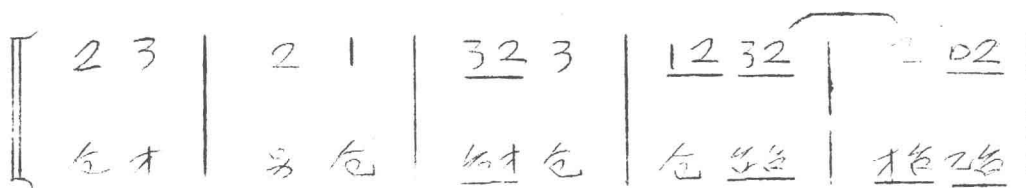 2 3 | 2 1 | 32 3 | 12 32 | 2 02
仓 才 | 另 仓 | 台才 仓 | 仓 台台 | 才台 乙台